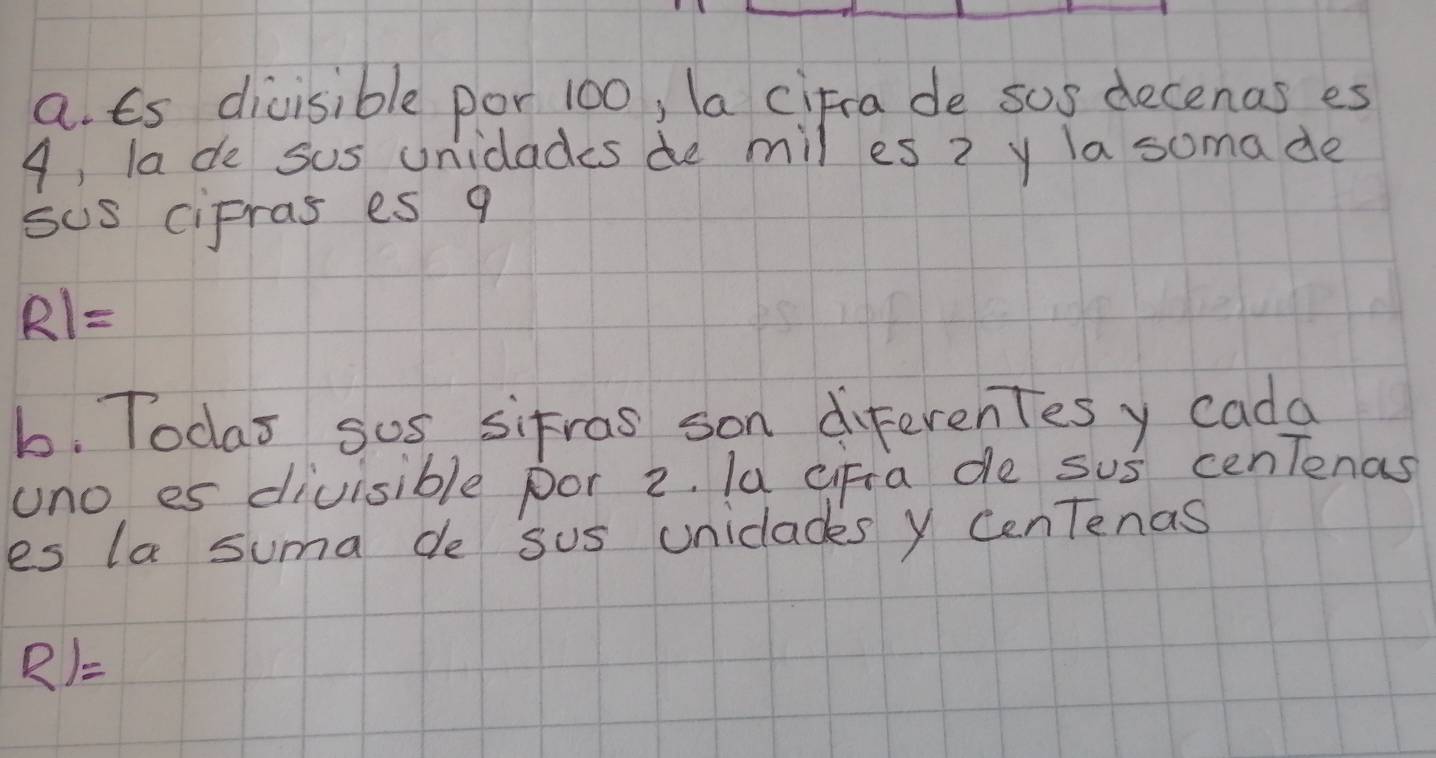 a. Es divisible por 100, la cifra de sus decenas es
4, la de sus unidades de mil es 2 y la soma de
sus cifras es 9
R/=
b. Todas sus sifras son diferentes y cada
uno es divisible por 2. la cifra de sus centenas
es la suma de sus unidades y centenas
R/=